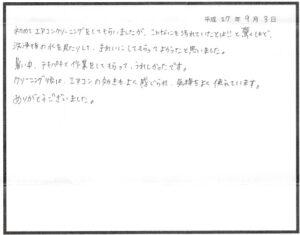 平成27年9月8日
初めてエアコンクリーニングをしてもらいましたが、こんなにも汚れていたとは!!と驚くもので、
洗浄後の水を見たりして、きれいにしてもらってよかったと思いました。
暑い中、テキパキと作業をしてもらって、うれしかったです。
クリーニング後は、エアコンの効きもよく感じられ、気持ちよく使えています。
ありがとうございました。